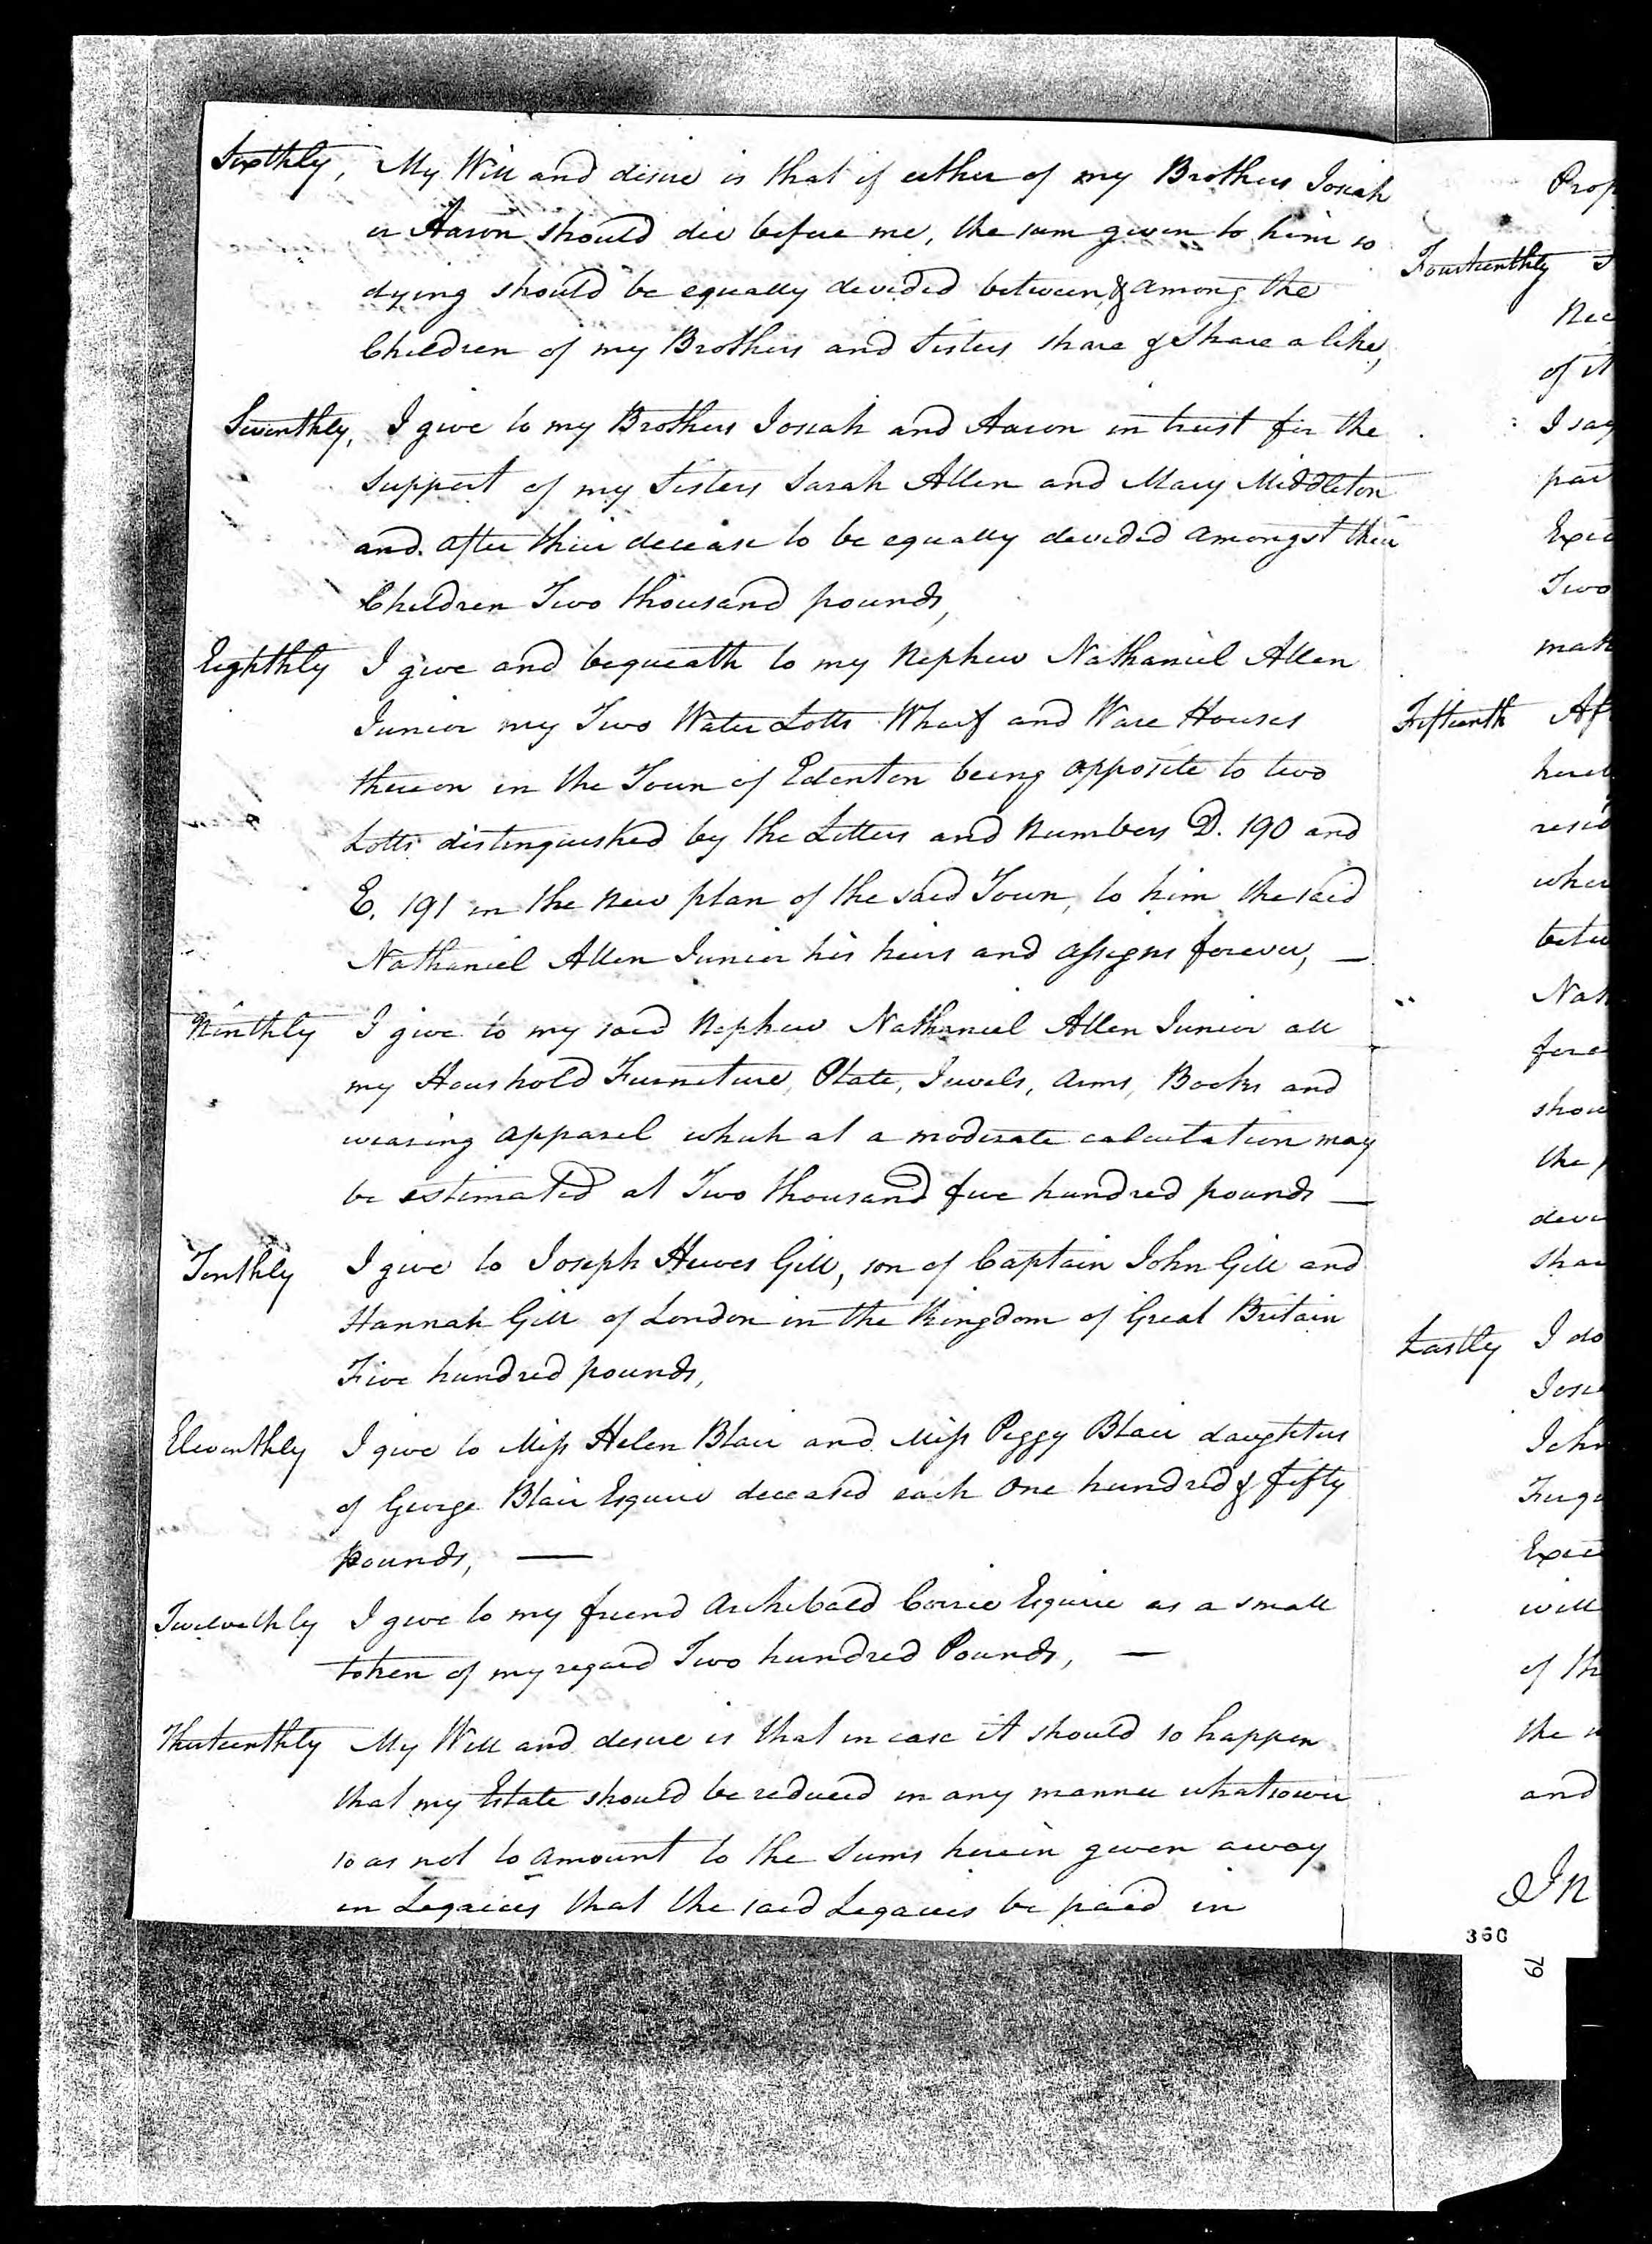 Sixthly, My Will and desire is that if either of my Brothers Josiah
or Aaron should die before me, the sum given to him so
dying should be equally devided between & among the
Children of my Brothers and Sisters share & share alike,
Seventhly, I give to my Brothers Josiah and Aaron in trust for the
support of my Sisters Sarah Allen and Mary Middleton
and after their decease to be equally devided amongst their
Children Two thousand pounds,
Eighthly I give and bequeath to my Nephew Nathaniel Allen
Junior my Two Water Lotts Wharf and Ware Houses
thereon in the Town of Edenton being opposite to two
Lotts distinguished by the Letters and Numbers D. 190 and
E. 191 in the new plan of the said Town, to him the said
Nathaniel Allen Junior his heirs and assigns forever, —
Ninthly I give to my said Nephew Nathaniel Allen Junior all
my Houshold Furneture, Plate, Juwels, Arms, Books and
wearing apparel which at a moderate calculation may
be estimated at Two thousand five hundred pounds —
Tenthly I give to Joseph Hewes Gill, son of Captain John Gill and
Hannah Gill of London in the Kingdom of Great Britain
Five hundred pounds,
Eleventhly I give to Miss Helen Blair and Miss Peggy Blair daughters
of George Blair Esquire deceased each One hundred & fifty
pounds, —
Twelvethly I give to my friend Archibald Corrie Esquire as a small
token of my regard Two hundred Pounds, —
Thirteenthly My Will and desire is that in case it should so happen
that my Estate should be reduced in any manner whatsoever
so as not to amount to the Sums herein given away
in Legacies that the said Legacies be paid in
Prop
Fourteenthly I
Nec
of it
I say
par
Exec
Two
mak
Fifteenth Af
hereb
resid
wher
betw
Nath
fore
shou
the
devi
shar
Lastly I do
Josi
John
Furgu
Exec
will
of th
the
and
In
360
79